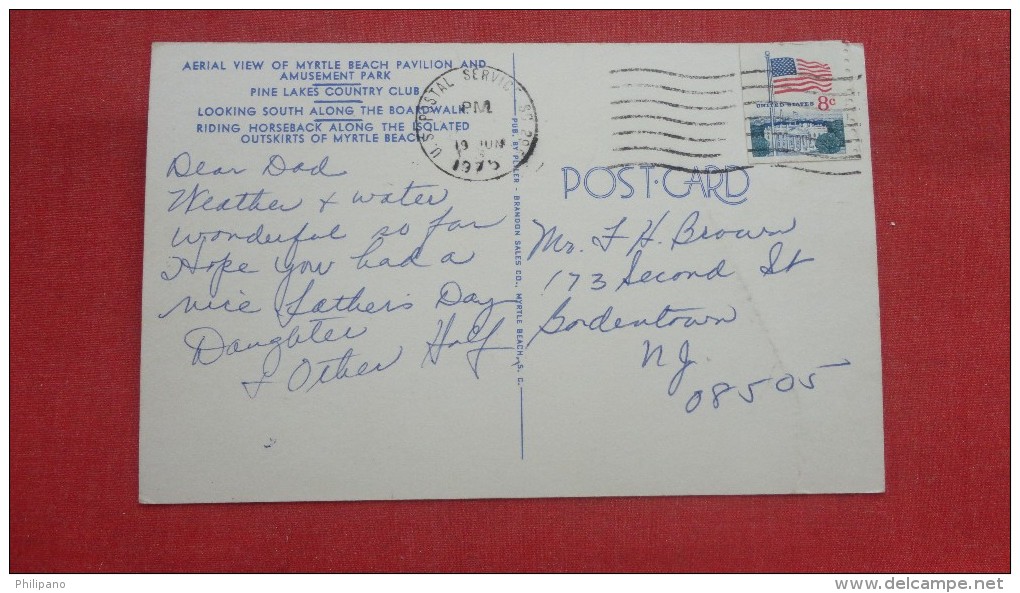 AERIAL VIEW OF MYRTLE BEACH PAVILION AND
AMUSEMENT PARK
PINE LAKES COUNTRY CLUB
LOOKING SOUTH ALONG THE BOARDWALK
RIDING HORSEBACK ALONG THE ISOLATED
OUTSKIRTS OF MYRTLE BEACH
Dear Dad
Weather & water
wonderful so far
Hope you had a
nice Father's Day
Daughter
& Other Half
U.S. POSTAL SERVICE SC
PM
19 JUN
1975
PUB. BY PELLER - BRANDON SALES CO., MYRTLE BEACH, S. C.
UNITED STATES 8c
POST-CARD
Mr. F H. Brown
173 Second St
Bordentown
NJ
08505
Philipano
www.delcampe.net